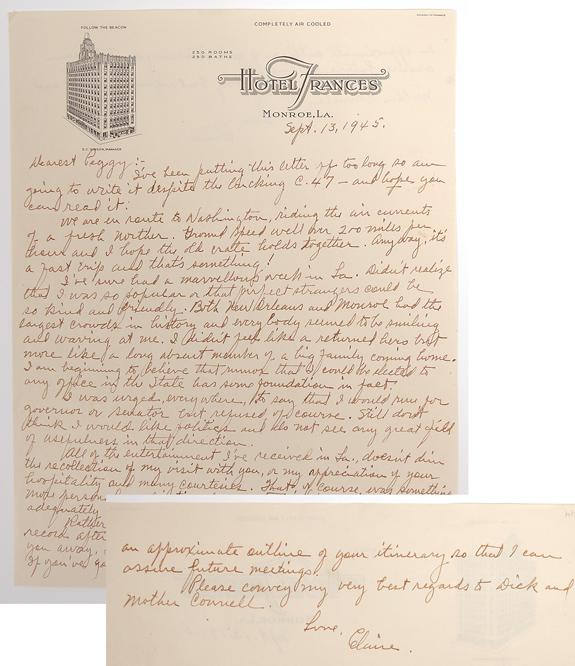 FOLLOW THE BEACON
COMPLETELY AIR COOLED
250 ROOMS
250 BATHS
HOTEL FRANCES
MONROE, LA.
Sept. 13, 1945.
Dearest Peggy:-
I've been putting this letter off too long so am
going to write it despite the bucking C.47 — and hope you
can read it.
We are en route to Washington, riding the air currents
of a fresh norther. Ground speed well over 200 miles per
hour and I hope the old crate holds together. Anyway, it's
a fast trip and that's something!
I've sure had a marvellous week in La. Didn't realize
that I was so popular or that perfect strangers could be
so kind and friendly. Both New Orleans and Monroe had the
largest crowds in history and everybody seemed to be smiling
and waving at me. I didn't feel like a returned hero but
more like a long absent member of a big family coming home.
I am beginning to believe that rumor that I could be elected to
any office in the State has some foundation in fact.
I was urged, everywhere, to say that I would run for
governor or senator but refused, of course. Still don't
think I would like politics and do not see any great field
of usefulness in that direction.
All of the entertainment I've received in La., doesn't dim
the recollection of my visit with you, or my appreciation of your
hospitality and many courtesies. That, of course, was something
more personal
adequately
Rather
record after
you away,
If you ve
an approximate outline of your itinerary so that I can
assure future meetings.
Please convey my very best regards to Dick and
Mother Connell.
Love,
Claire.